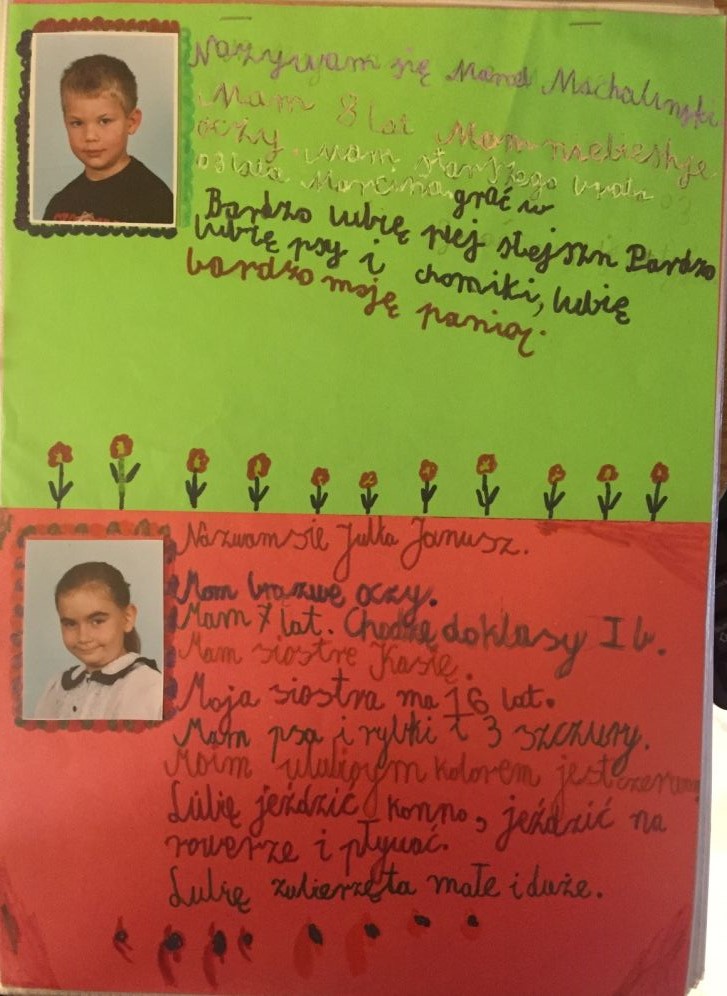 Nazywam się Marcel Machalinski
Mam 8 lat Mam niebieskje
oczy. Mam starszego brata
brata Marcina grać w
Bardzo lubię plej stejszn Bardzo
lubię psy i chomiki, lubię
bardzo moję panią.
Nazwam sie Julka Janusz.
Mom brazwę oczy.
Mam 7 lat. Chodzę do klasy I b.
Mam siostre Kasię.
Moja siostra ma 16 lat.
Mam psa i rybki i 3 szczury.
Moim ulubioym kolorem jest
Lubię jeździć konno, jeździć na
rowerze i pływać.
Lubię zwierzęta małe i duże.